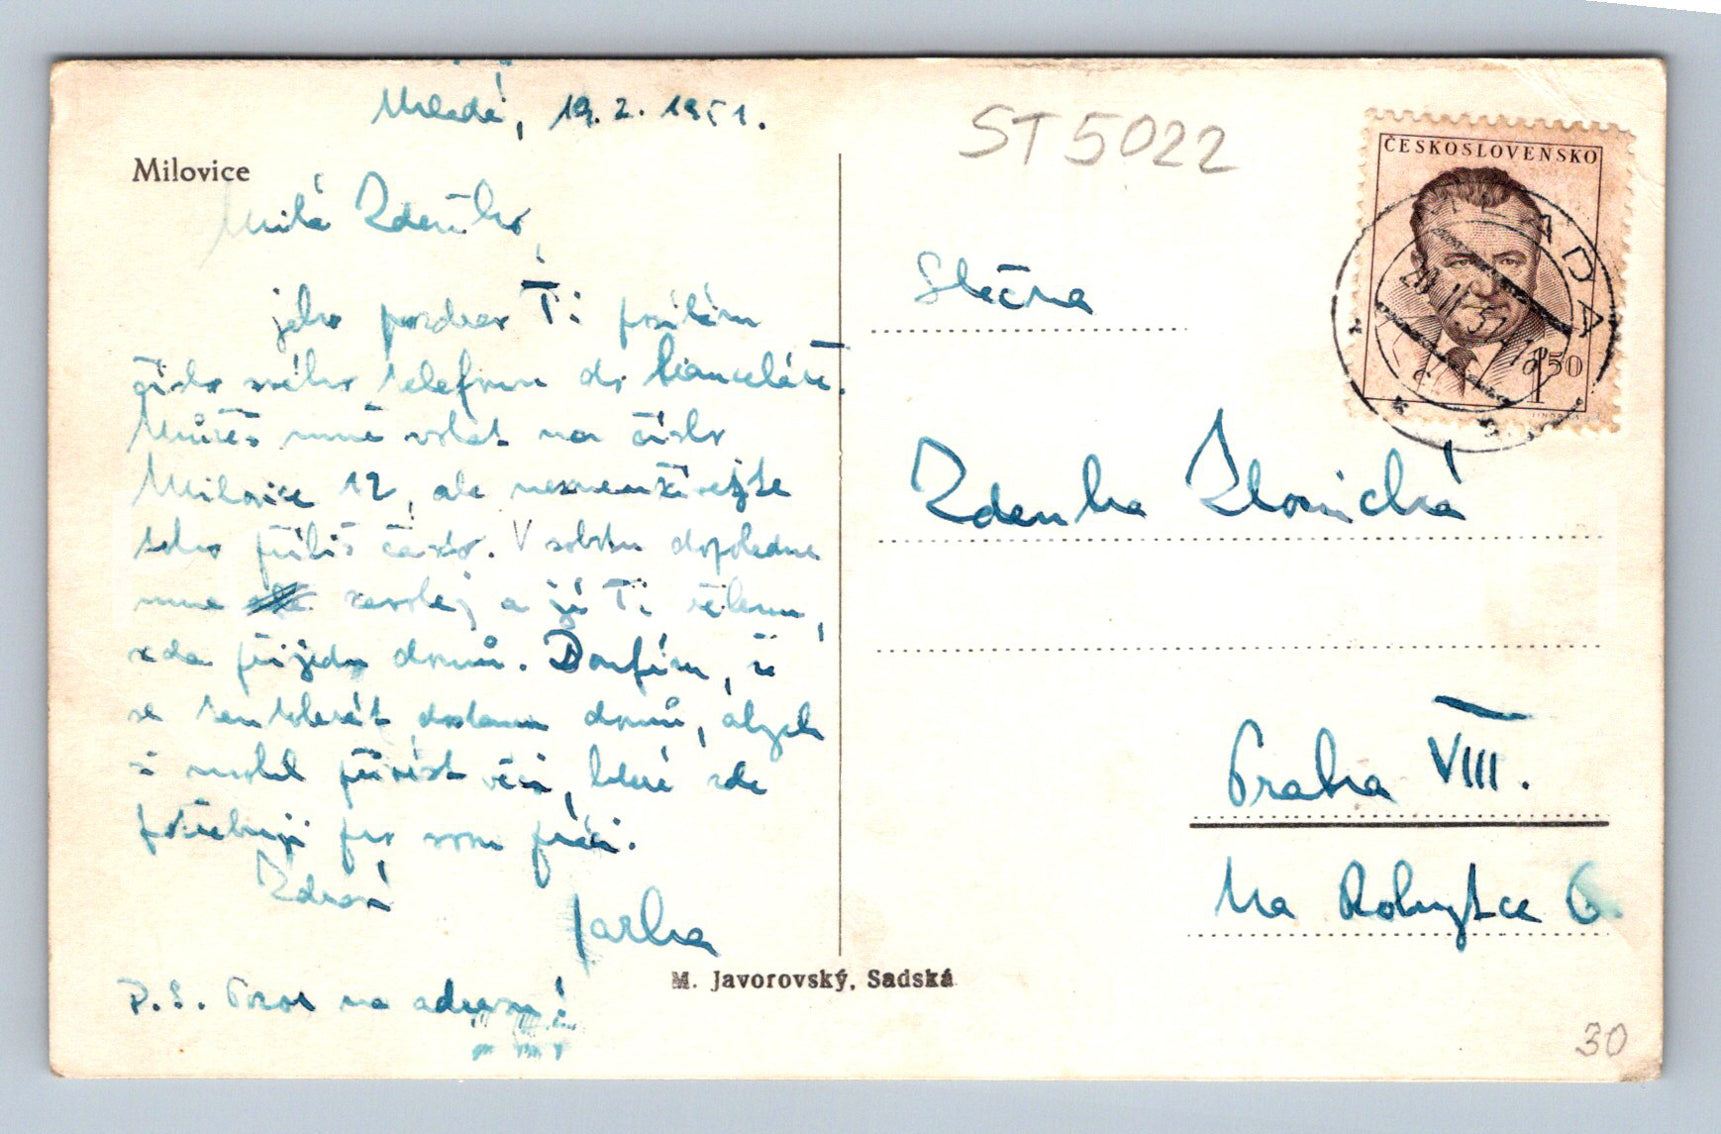 Mladá, 19.2.1951.
Milovice
Milá Zdeňko,
jako pozdrav Ti posílám
číslo svého telefonu do kanceláře.
Můžeš mně volat na číslo
Milovice 12, ale nezneužívejte
toho příliš často. V sobotu dopoledne
mne zavolej a já Ti řeknu,
zda přijedu domů. Doufám, že
se tentokrát dostanu domů, abych
si mohl přivézt věci, které zde
potřebuji pro svou práci.
Zdraví
Jarka
P.S. Pozor na adresu!
M. Javorovský, Sadská
ST 5022
ČESKOSLOVENSKO
1.50
MLADÁ
Slečna
Zdenka Zlonická
Praha VIII.
Na Rokytce 6.
30